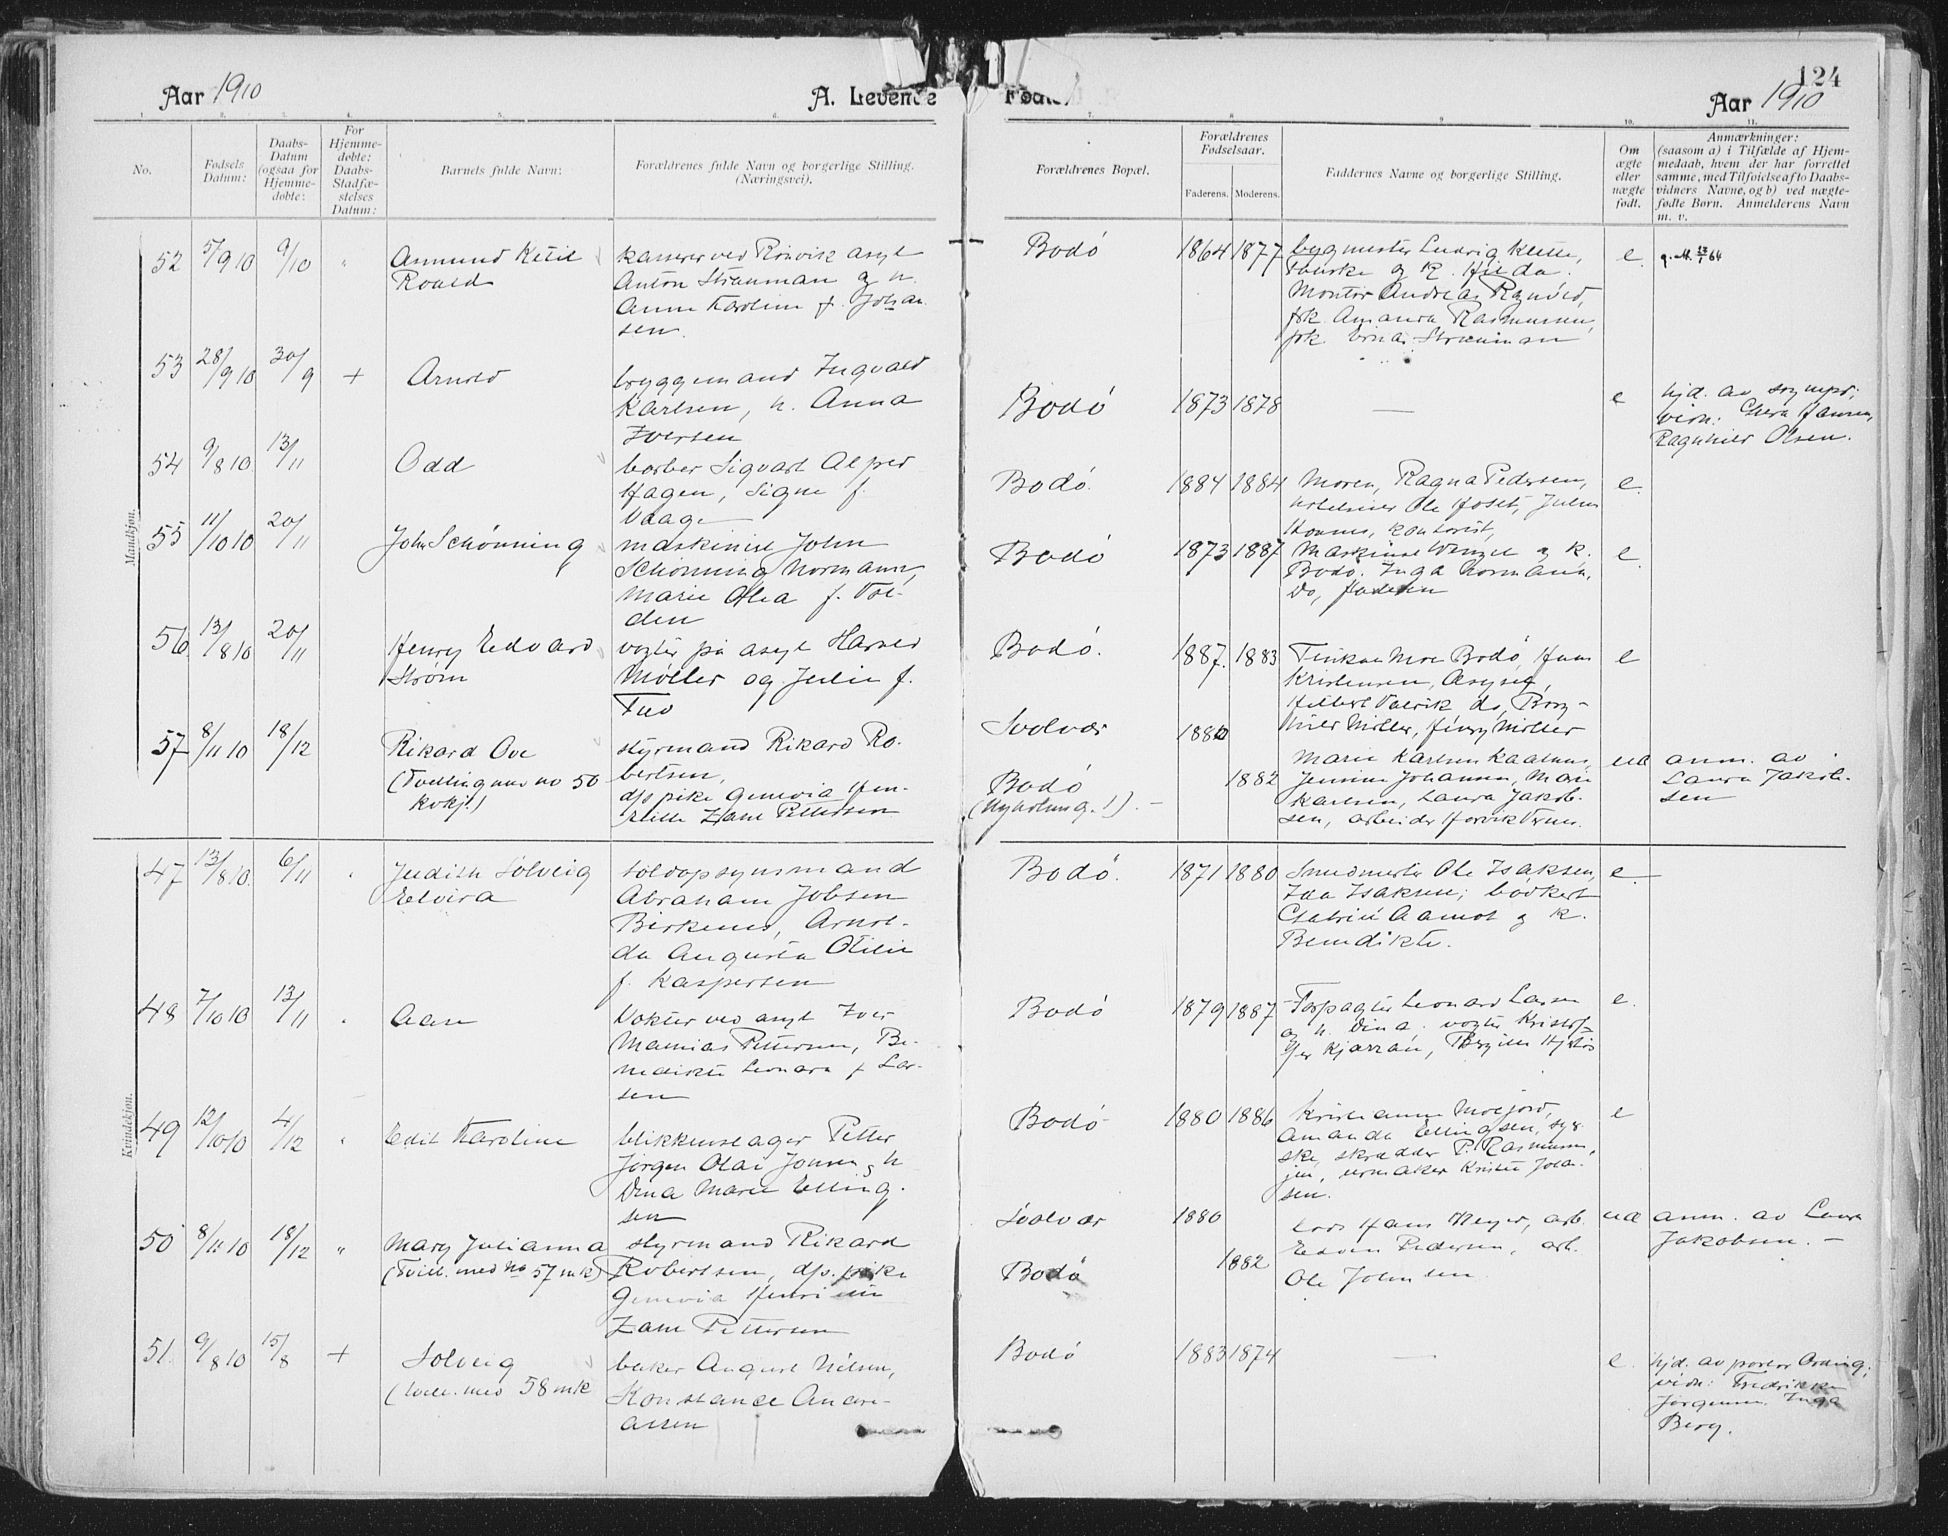 124
Aar 1910
A. Levende Fødte.
Aar 1910
1. 2. 3. 4. 5. 6. 7. 8. 9. 10. 11.
No.
Fødsels Datum:
Daabs-Datum (ogsaa for Hjemme-døbte:
For Hjemme-døbte: Daabs-Stadfæ-stelses Datum:
Barnets fulde Navn:
Forældrenes fulde Navn og borgerlige Stilling. (Næringsvei).
Forældrenes Bopæl.
Forældrenes Fødselsaar.
Faderens. Moderens.
Faddernes Navne og borgerlige Stilling.
Om ægte eller uægte født.
Anmærkninger:
(saasom a) i Tilfælde af Hjem-
medaab, hvem der har forrettet
samme, med Tilføielse af to Daabs-
vidners Navne, og b) ved uægte-
fødte Børn. Anmelderens Navn
m. v.
Mandkjøn.
52 5/9 10 9/10 " Amund Ketil
Roald
kasserer ved Rönvik asyl
Anton Straumann og h.
Anna Karoline f. Johan
sen.
Bodö 1864 1877
Ludvig Klette,
og k. Hilda.
Montör Andreas
frk. Amanda Rasmussen,
frk.
e.
53 28/9 10 30/9 + Arnold
bryggemand Ingvald
Karlsen, h. Anna
Iversen
Bodö 1873 1878 — e
hjd. av
vidn: Hansen,
Ragnhild Olsen.
54 9/8 10 13/11 Odd
barber Sigvart Alfred
Hagen, Signe f.
Vaage
Bodö. 1884 1884
Moren, Ragna Pedersen,
Ole Hoset,
kontorist,
e.
55 11/10 10 20/11 John Schönning
maskinist John
Schönning Normann,
Marie Olea f. Vol-
den
Bodö 1873 1887
Maskinist Wenzel og k.
Bodö. Inga Normann,
do,
e.
56. 13/8 10 20/11 Henry Edvard
Strøm
vogter på asyl Harald
Møller og Julie f.
Bodö. 1887. 1883
Moe Bodö, Hans
Kristensen,
do,
Møller, Henry Møller
e
57 8/11 10 18/12 Rikard Ove
(Tvilling med no 50
kvkj.)
styrmand Rikard Ro-
bertsen,
d/s pike Genovia Hen-
Zane Pettersen
Svolvær 1880
Bodö 1882
Marie Karlsen
Johansen, Marie
Karlsen, Laura Jakob-
sen, arbeider
ud
anm. av
Laura Jakob-
sen
Kvindekjøn.
47 13/8 10. 6/11 " Judith Solveig
Elvira
toldopsynsmand
Abraham Jobsen
Birkenes, Arnol-
da Augusta Otilie
f. Kaspersen
Bodö. 1871 1880
Smedmester Ole Isaksen,
Ida Isaksen; bödker
Aamot og k.
Benedikte.
e.
48 7/10 10 13/11 "
Vokter ved asyl Iver
Mathias Pettersen, Be-
nedikte Leonora f Lar-
sen
Bodö 1879 1887
Forpagter Leonard Larsen
og h. Dina; vogter Kristof-
fer
e.
49 12/10 10 4/12 " Edit Karoline
blikkenslager Petter
Jörgen Olai Jensen, h
Dina Marie Elling-
sen
Bodö 1880 1886
Amanda Ellingsen, syer-
ske, skrædder P. Rasmussen,
urmaker Johan-
sen.
e
50 8/11 10 18/12 " Mary Julianna
(Tvill. med No 57 mk)
styrmand Rikard
Robertsen, d/s. pike
Genovia
Zane Pettersen
Svolvær 1880
Bodö 1882
Lars Hans Meyer, arb.
Edvin Pedersen, arb.
Ole Johnsen
ud
anm. av Laura
Jakobsen. —
51. 9/8 10 15/8 + Solveig
(tvill. med 58 mk
baker August Nilsen,
Konstance Andre-
assen
Bodö 1883 1874 — e.
hjd. av pastor Ording;
vidn: Fredrikke
Jörgensen. Inga
Berg.